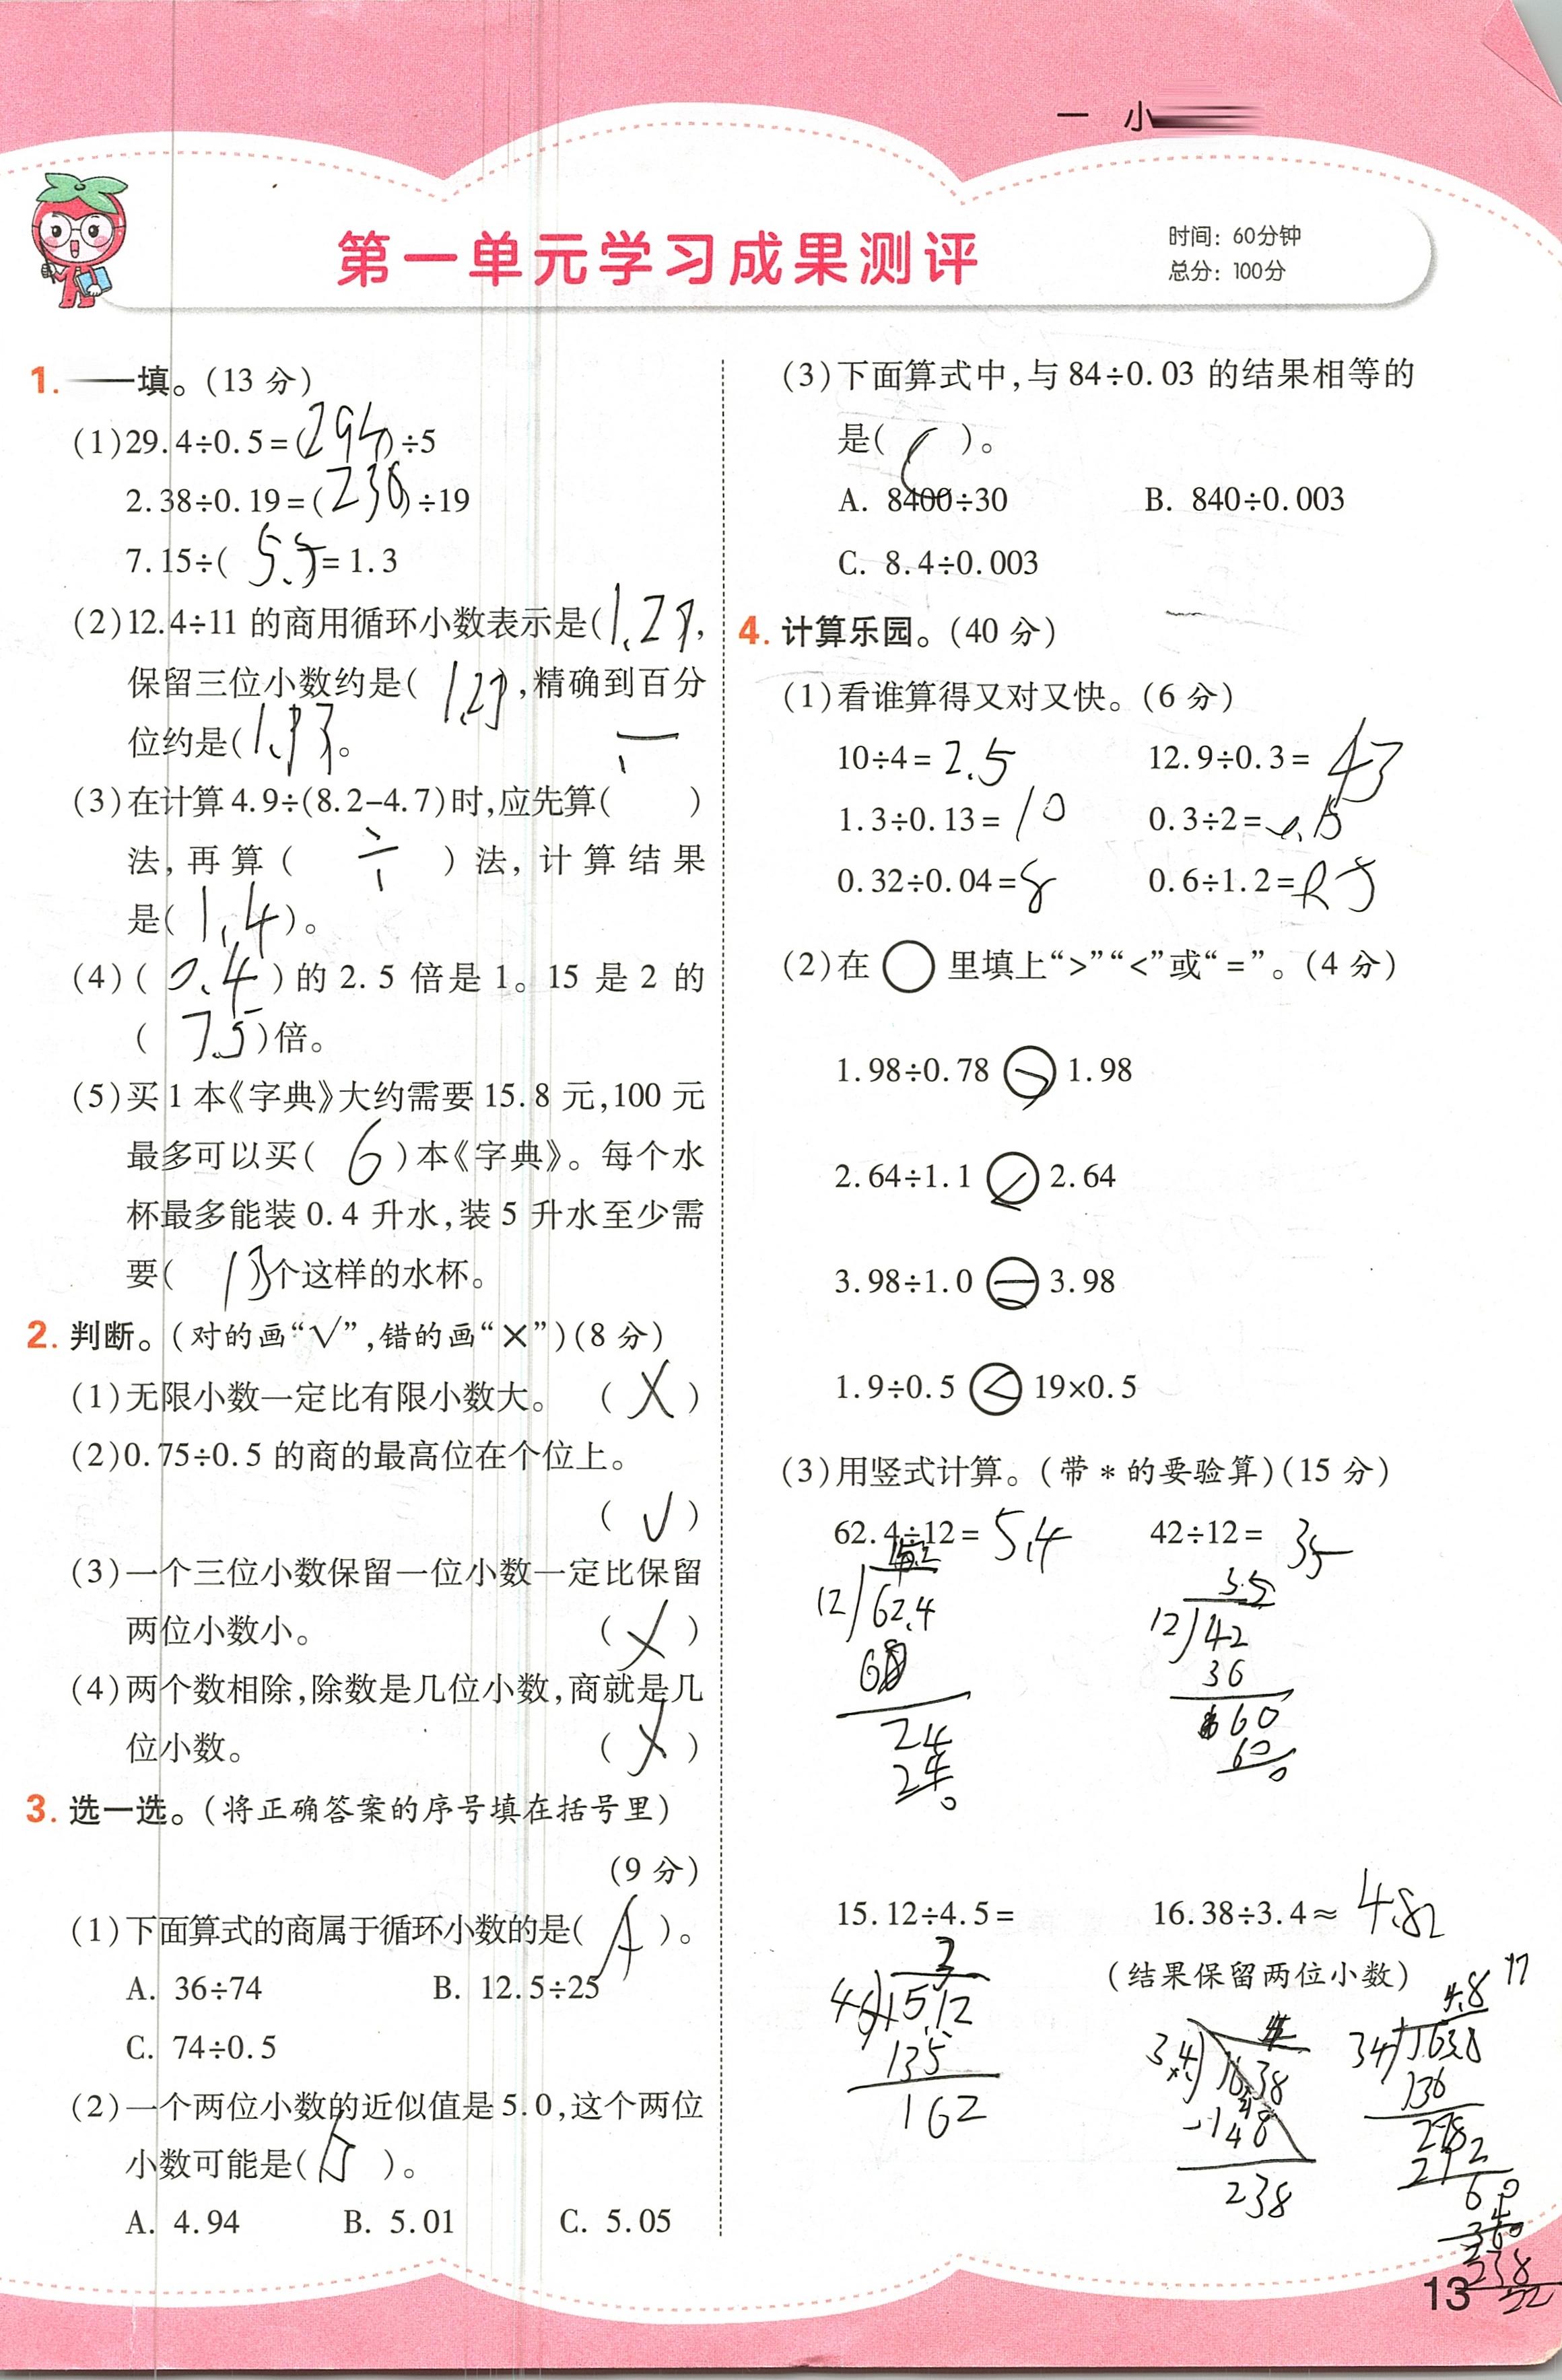 一 小
第一单元学习成果测评
时间：60分钟
总分：100分
1. 填。(13 分)
(1)29.4÷0.5=(294)÷5
2.38÷0.19=(238)÷19
7.15÷( 5.5 =1.3
(2)12.4÷11 的商用循环小数表示是(
保留三位小数约是( ,精确到百分
位约是( 。
(3)在计算 4.9÷(8.2-4.7)时,应先算( 一 )
法,再算( ÷ )法,计算结果
是( 1.4 )。
(4)( 0.4 )的 2.5 倍是 1。15 是 2 的
( 7.5 )倍。
(5)买 1 本《字典》大约需要 15.8 元,100 元
最多可以买( 6 )本《字典》。每个水
杯最多能装 0.4 升水,装 5 升水至少需
要( 13 个这样的水杯。
2. 判断。(对的画“√”,错的画“×”)(8 分)
(1)无限小数一定比有限小数大。 ( × )
(2)0.75÷0.5 的商的最高位在个位上。
( √ )
(3)一个三位小数保留一位小数一定比保留
两位小数小。 ( × )
(4)两个数相除,除数是几位小数,商就是几
位小数。 ( × )
3. 选一选。(将正确答案的序号填在括号里)
(9 分)
(1)下面算式的商属于循环小数的是( A )。
A. 36÷74 B. 12.5÷25
C. 74÷0.5
(2)一个两位小数的近似值是 5.0,这个两位
小数可能是( )。
A. 4.94 B. 5.01 C. 5.05
(3)下面算式中,与 84÷0.03 的结果相等的
是( )。
A. 8400÷30 B. 840÷0.003
C. 8.4÷0.003
4. 计算乐园。(40 分)
(1)看谁算得又对又快。(6 分)
10÷4= 2.5 12.9÷0.3= 43
1.3÷0.13= 10 0.3÷2=
0.32÷0.04= 8 0.6÷1.2=
(2)在 ○ 里填上“>”“<”或“=”。(4 分)
1.98÷0.78 1.98
2.64÷1.1 2.64
3.98÷1.0 = 3.98
1.9÷0.5 < 19×0.5
(3)用竖式计算。(带 * 的要验算)(15 分)
62.4÷12= 5.4 42÷12= 35
3.5
12 62.4 12 42
36
24 60
24 60
0 0
15.12÷4.5= 16.38÷3.4≈ 4.82
(结果保留两位小数)
3 4.8
15.12 3.4 16.38 34 163.8
135 136
162 272
238
238
22
13